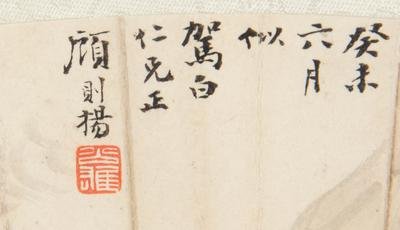 癸未
六月
似
駕白
仁兄正
顧則揚